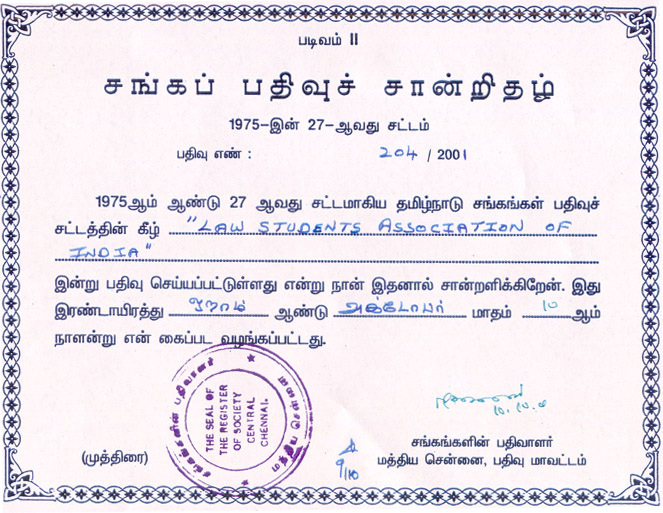 படிவம் II
சங்கப் பதிவுச் சான்றிதழ்
1975–இன் 27–ஆவது சட்டம்
பதிவு எண் : 204 / 2001
1975ஆம் ஆண்டு 27 ஆவது சட்டமாகிய தமிழ்நாடு சங்கங்கள் பதிவுச்
சட்டத்தின் கீழ் "LAW STUDENTS ASSOCIATION OF
INDIA"
இன்று பதிவு செய்யப்பட்டுள்ளது என்று நான் இதனால் சான்றளிக்கிறேன். இது
இரண்டாயிரத்து ஒறாம் ஆண்டு அக்டோபர் மாதம் 10 ஆம்
நாளன்று என் கைப்பட வழங்கப்பட்டது.
சங்கங்களின் பதிவாளர்
THE SEAL OF
THE REGISTER
OF SOCIETY
CENTRAL
CHENNAI.
மத்திய சென்னை
10.10.
9/10
(முத்திரை)
சங்கங்களின் பதிவாளர்
மத்திய சென்னை, பதிவு மாவட்டம்